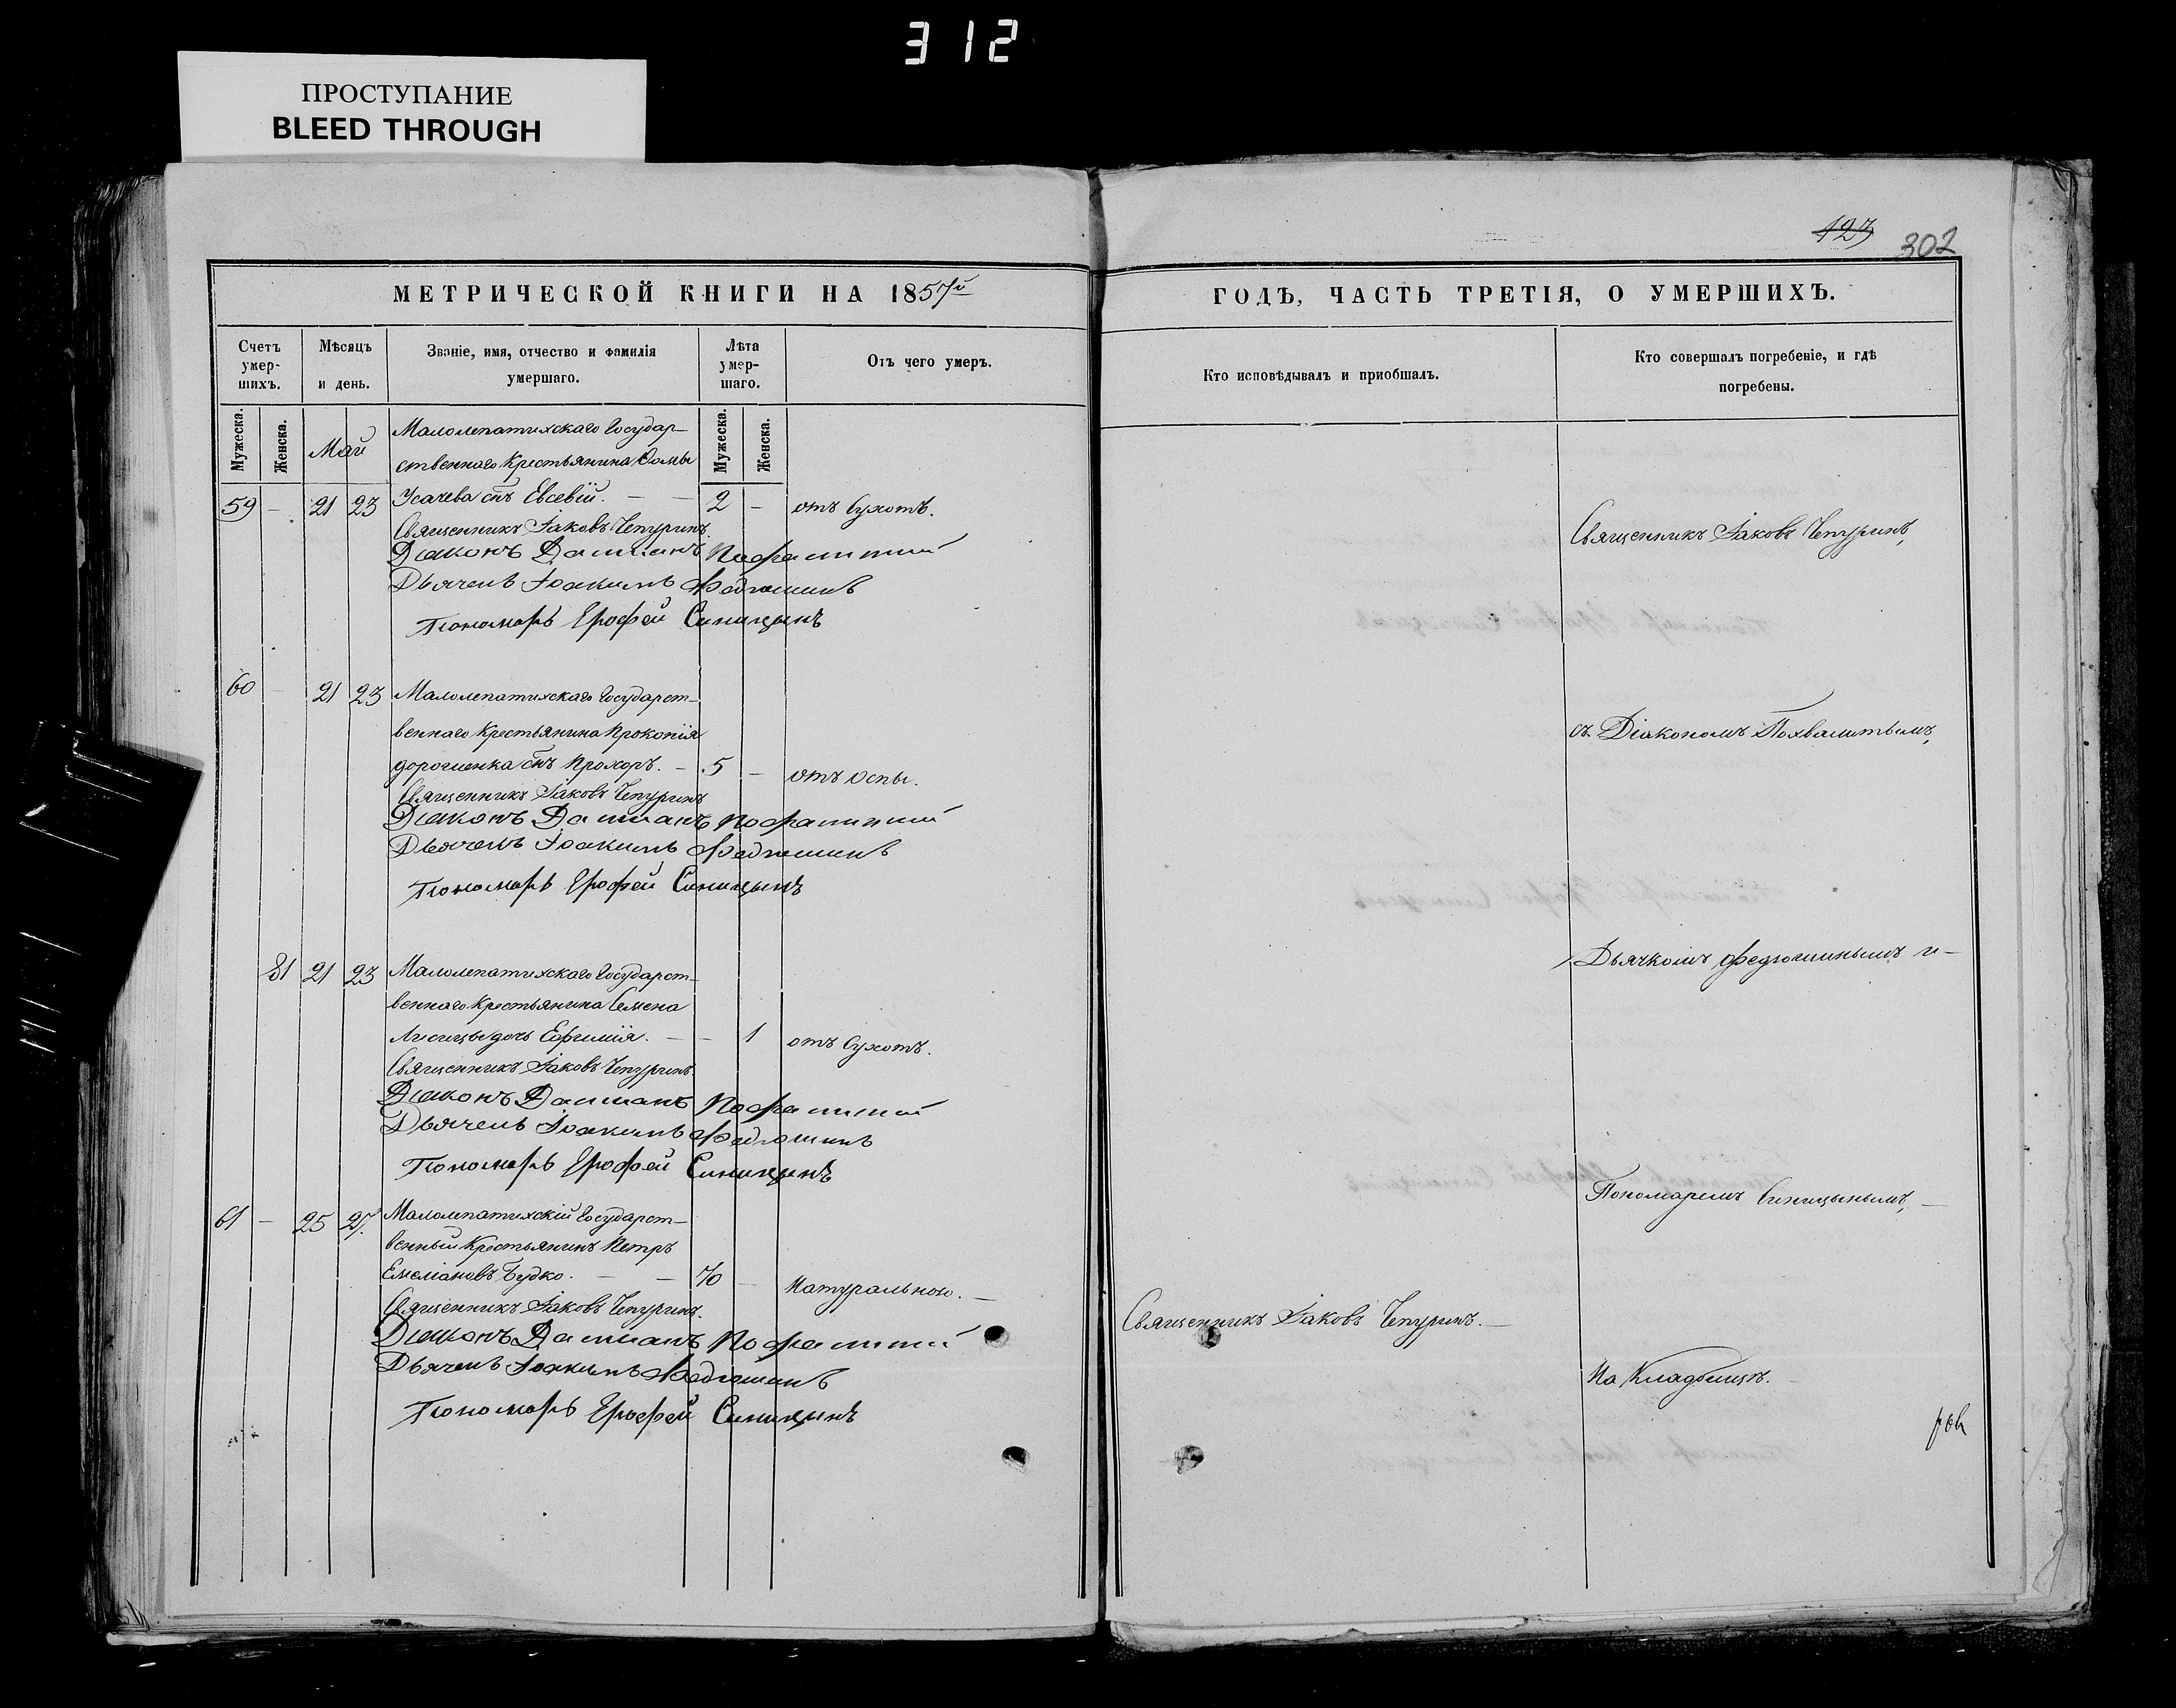 312
ПРОСТУПАНИЕ
BLEED THROUGH
123
302
МЕТРИЧЕСКОЙ КНИГИ НА 1857й
ГОДЪ, ЧАСТЬ ТРЕТІЯ, О УМЕРШИХЪ.
Счетъ умер-шихъ.
Мѣсяцъ и день.
Званіе, имя, отчество и фамилія умершаго.
Лѣта умер-шаго.
Отъ чего умеръ.
Кто исповѣдывалъ и приобшалъ.
Кто совершалъ погребеніе, и гдѣ погребены.
Мужеска.
Женска.
Мужеска.
Женска.
Май
Малолепатихскаго Государ-
ственнаго Крестьянина Фомы
59 – 21 23 Усачева снъ Евсевій. – – 2 – отъ Сухотъ.
Священникъ Іаковъ Чепуринъ.
Діаконъ Даміанъ
Дьячекъ Іоакимъ Федюшинъ
Пономарь Ерофей Синицынъ
60 – 21 23 Малолепатихскаго Государст-
веннаго Крестьянина Прокопія
дорошенка снъ Прохоръ. – 5 – отъ оспы.
Священникъ Іаковъ Чепуринъ
Діаконъ Даміанъ
Дьячекъ Іоакимъ Федюшинъ
Пономарь Ерофей Синицынъ
81 21 23 Малолепатихскаго Государст-
веннаго Крестьянина Семена
Лисицы дочь Ефимія. – – 1 отъ Сухотъ.
Священникъ Іаковъ Чепуринъ.
Діаконъ Даміанъ
Дьячекъ Іоакимъ Федюшинъ
Пономарь Ерофей Синицынъ
61 – 25 27. Малолепатихскій Государст-
венный Крестьянинъ Петръ
Емеліановъ Будко. – – 70 – Натурально. –
Священникъ Іаковъ Чепуринъ.
Діаконъ Даміанъ
Дьячекъ Іоакимъ Федюшинъ
Пономарь Ерофей Синицынъ
Священникъ Іаковъ Чепуринъ. –
Священникъ Іаковъ Чепуринъ,
съ Діакономъ Похвалитымъ,
Дьячкомъ Федюшинымъ и –
Пономаремъ Синицынымъ, –
На Кладбищѣ. –